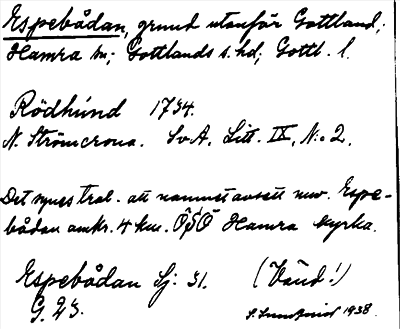 Espebådan, grund utanför Gottland;
Hamra sn; Gottlands s. hd; Gottl. l.
Rödhund 1734.
N. Strömcrona. SvA. Litt. IX, N:o 2.
Det synes trol. att namnet avsett nuv. Espe-
bådan omkr. 4 km. ÖSÖ Hamra kyrka.
Espebådan Sj: 31. (Vänd!)
G. 23. 1938